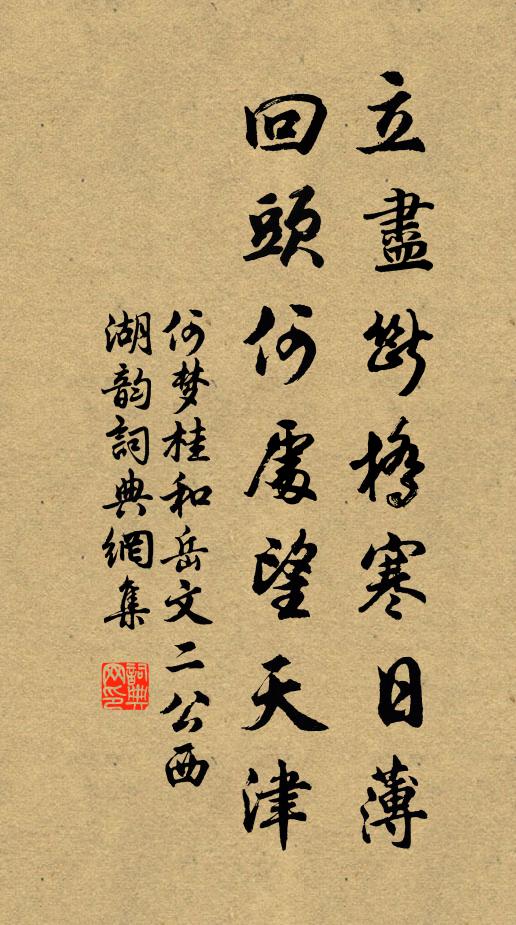 立盡斷橋寒日薄
回頭何處望天津
何梦桂和岳文二公西
湖韵詞典網集
詞典网印